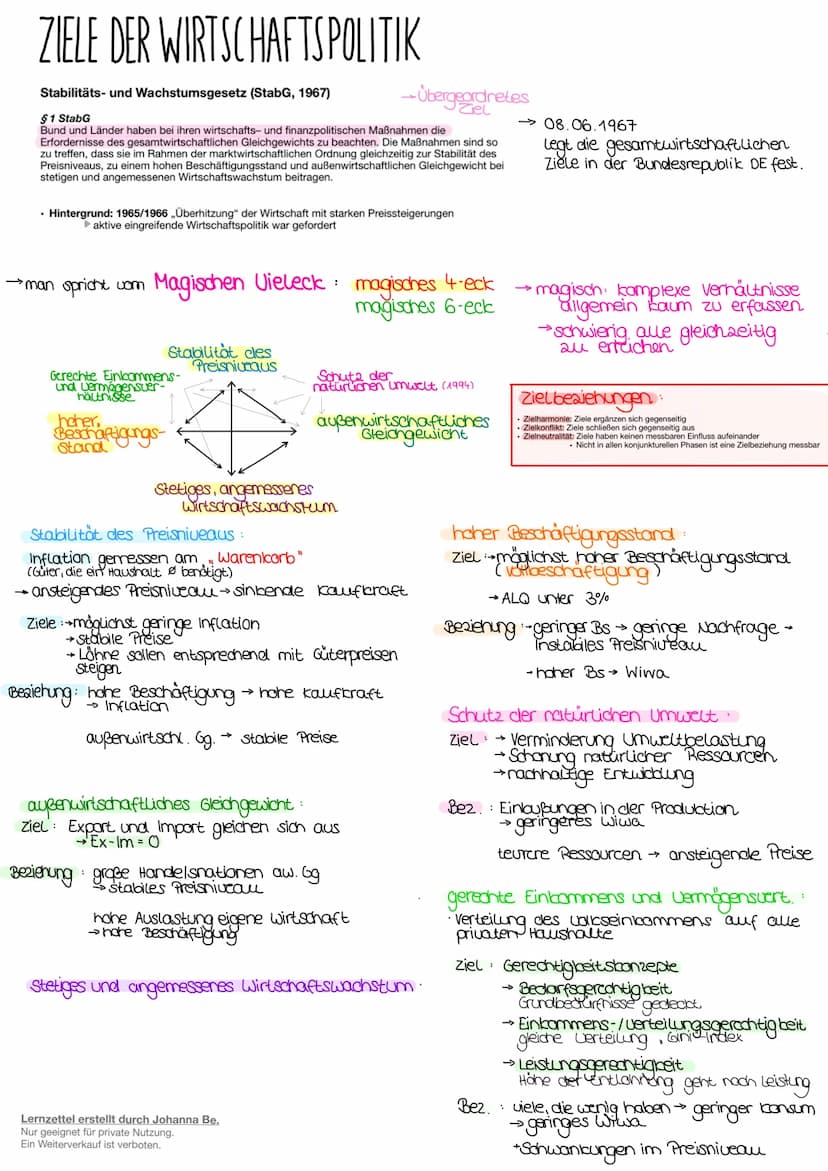 ZIELE DER WIRTSCHAFTSPOLITIK
Stabilitäts- und Wachstumsgesetz (StabG, 1967)
→ Übergeordnetes
Ziel
§ 1 StabG
Bund und Länder haben bei ihren wirtschafts– und finanzpolitischen Maßnahmen die
Erfordernisse des gesamtwirtschaftlichen Gleichgewichts zu beachten. Die Maßnahmen sind so
zu treffen, dass sie im Rahmen der marktwirtschaftlichen Ordnung gleichzeitig zur Stabilität des
Preisniveaus, zu einem hohen Beschäftigungsstand und außenwirtschaftlichen Gleichgewicht bei
stetigen und angemessenen Wirtschaftswachstum beitragen.
→ 08.06.1967
legt die gesamtwirtschaftlichen
Ziele in der Bundesrepublik DE fest.
• Hintergrund: 1965/1966 „Überhitzung“ der Wirtschaft mit starken Preissteigerungen
aktive eingreifende Wirtschaftspolitik war gefordert
→ man spricht vom Magischen Vieleck : magisches 4-eck
magisches 6-eck
→ magisch: komplexe Verhältnisse
allgemein kaum zu erfassen
→ schwierig alle gleichzeitig
zu erreichen
Stabilität des
Preisniveaus
Gerechte Einkommens-
und Vermögensver-
hältnisse
Schutz der
natürlichen Umwelt (1994)
hoher
Beschäftigungs-
stand
außenwirtschaftliches
Gleichgewicht
Stetiges, angemessenes
Wirtschaftswachstum
Zielbeziehungen:
• Zielharmonie: Ziele ergänzen sich gegenseitig
• Zielkonflikt: Ziele schließen sich gegenseitig aus
• Zielneutralität: Ziele haben keinen messbaren Einfluss aufeinander
• Nicht in allen konjunkturellen Phasen ist eine Zielbeziehung messbar
Stabilität des Preisniveaus :
Inflation gemessen am „Warenkorb"
(Güter, die ein Haushalt Ø benötigt)
→ ansteigendes Preisniveau → sinkende Kaufkraft
Ziele :→ möglichst geringe Inflation
→ stabile Preise
→ Löhne sollen entsprechend mit Güterpreisen
steigen
Beziehung: hohe Beschäftigung → hohe Kaufkraft
→ Inflation
außenwirtschl. Gg. → stabile Preise
außenwirtschaftliches Gleichgewicht :
Ziel : Export und Import gleichen sich aus
→ Ex-Im = 0
Beziehung : große Handelsnationen aw. Gg
→ stabiles Preisniveau
hohe Auslastung eigene Wirtschaft
→ hohe Beschäftigung
Stetiges und angemessenes Wirtschaftswachstum :
hoher Beschäftigungsstand :
Ziel :→ möglichst hoher Beschäftigungsstand
(Vollbeschäftigung)
→ ALQ unter 3%
Beziehung :- geringer Bs → geringe Nachfrage →
Instabiles Preisniveau
- hoher Bs → Wiwa
Schutz der natürlichen Umwelt :
Ziel : → Verminderung Umweltbelastung
→ Schonung natürlicher Ressourcen
→ nachhaltige Entwicklung
Bez. : Einbußungen in der Produktion
→ geringeres Wiwa
teurere Ressourcen → ansteigende Preise
gerechte Einkommens und Vermögensvert. :
· Verteilung des Volkseinkommens auf alle
privaten Haushalte
Ziel : Gerechtigkeitskonzepte
→ Bedarfsgerechtigkeit
Grundbedürfnisse gedeckt
→ Einkommens-/Verteilungsgerechtigkeit
gleiche Verteilung, Gini-Index
→ Leistungsgerechtigkeit
Höhe der Entlohnung geht nach Leistung
Bez. : viele, die wenig haben → geringer Konsum
→ geringes Wiwa
+ Schwankungen im Preisniveau
Lernzettel erstellt durch Johanna Be.
Nur geeignet für private Nutzung.
Ein Weiterverkauf ist verboten.